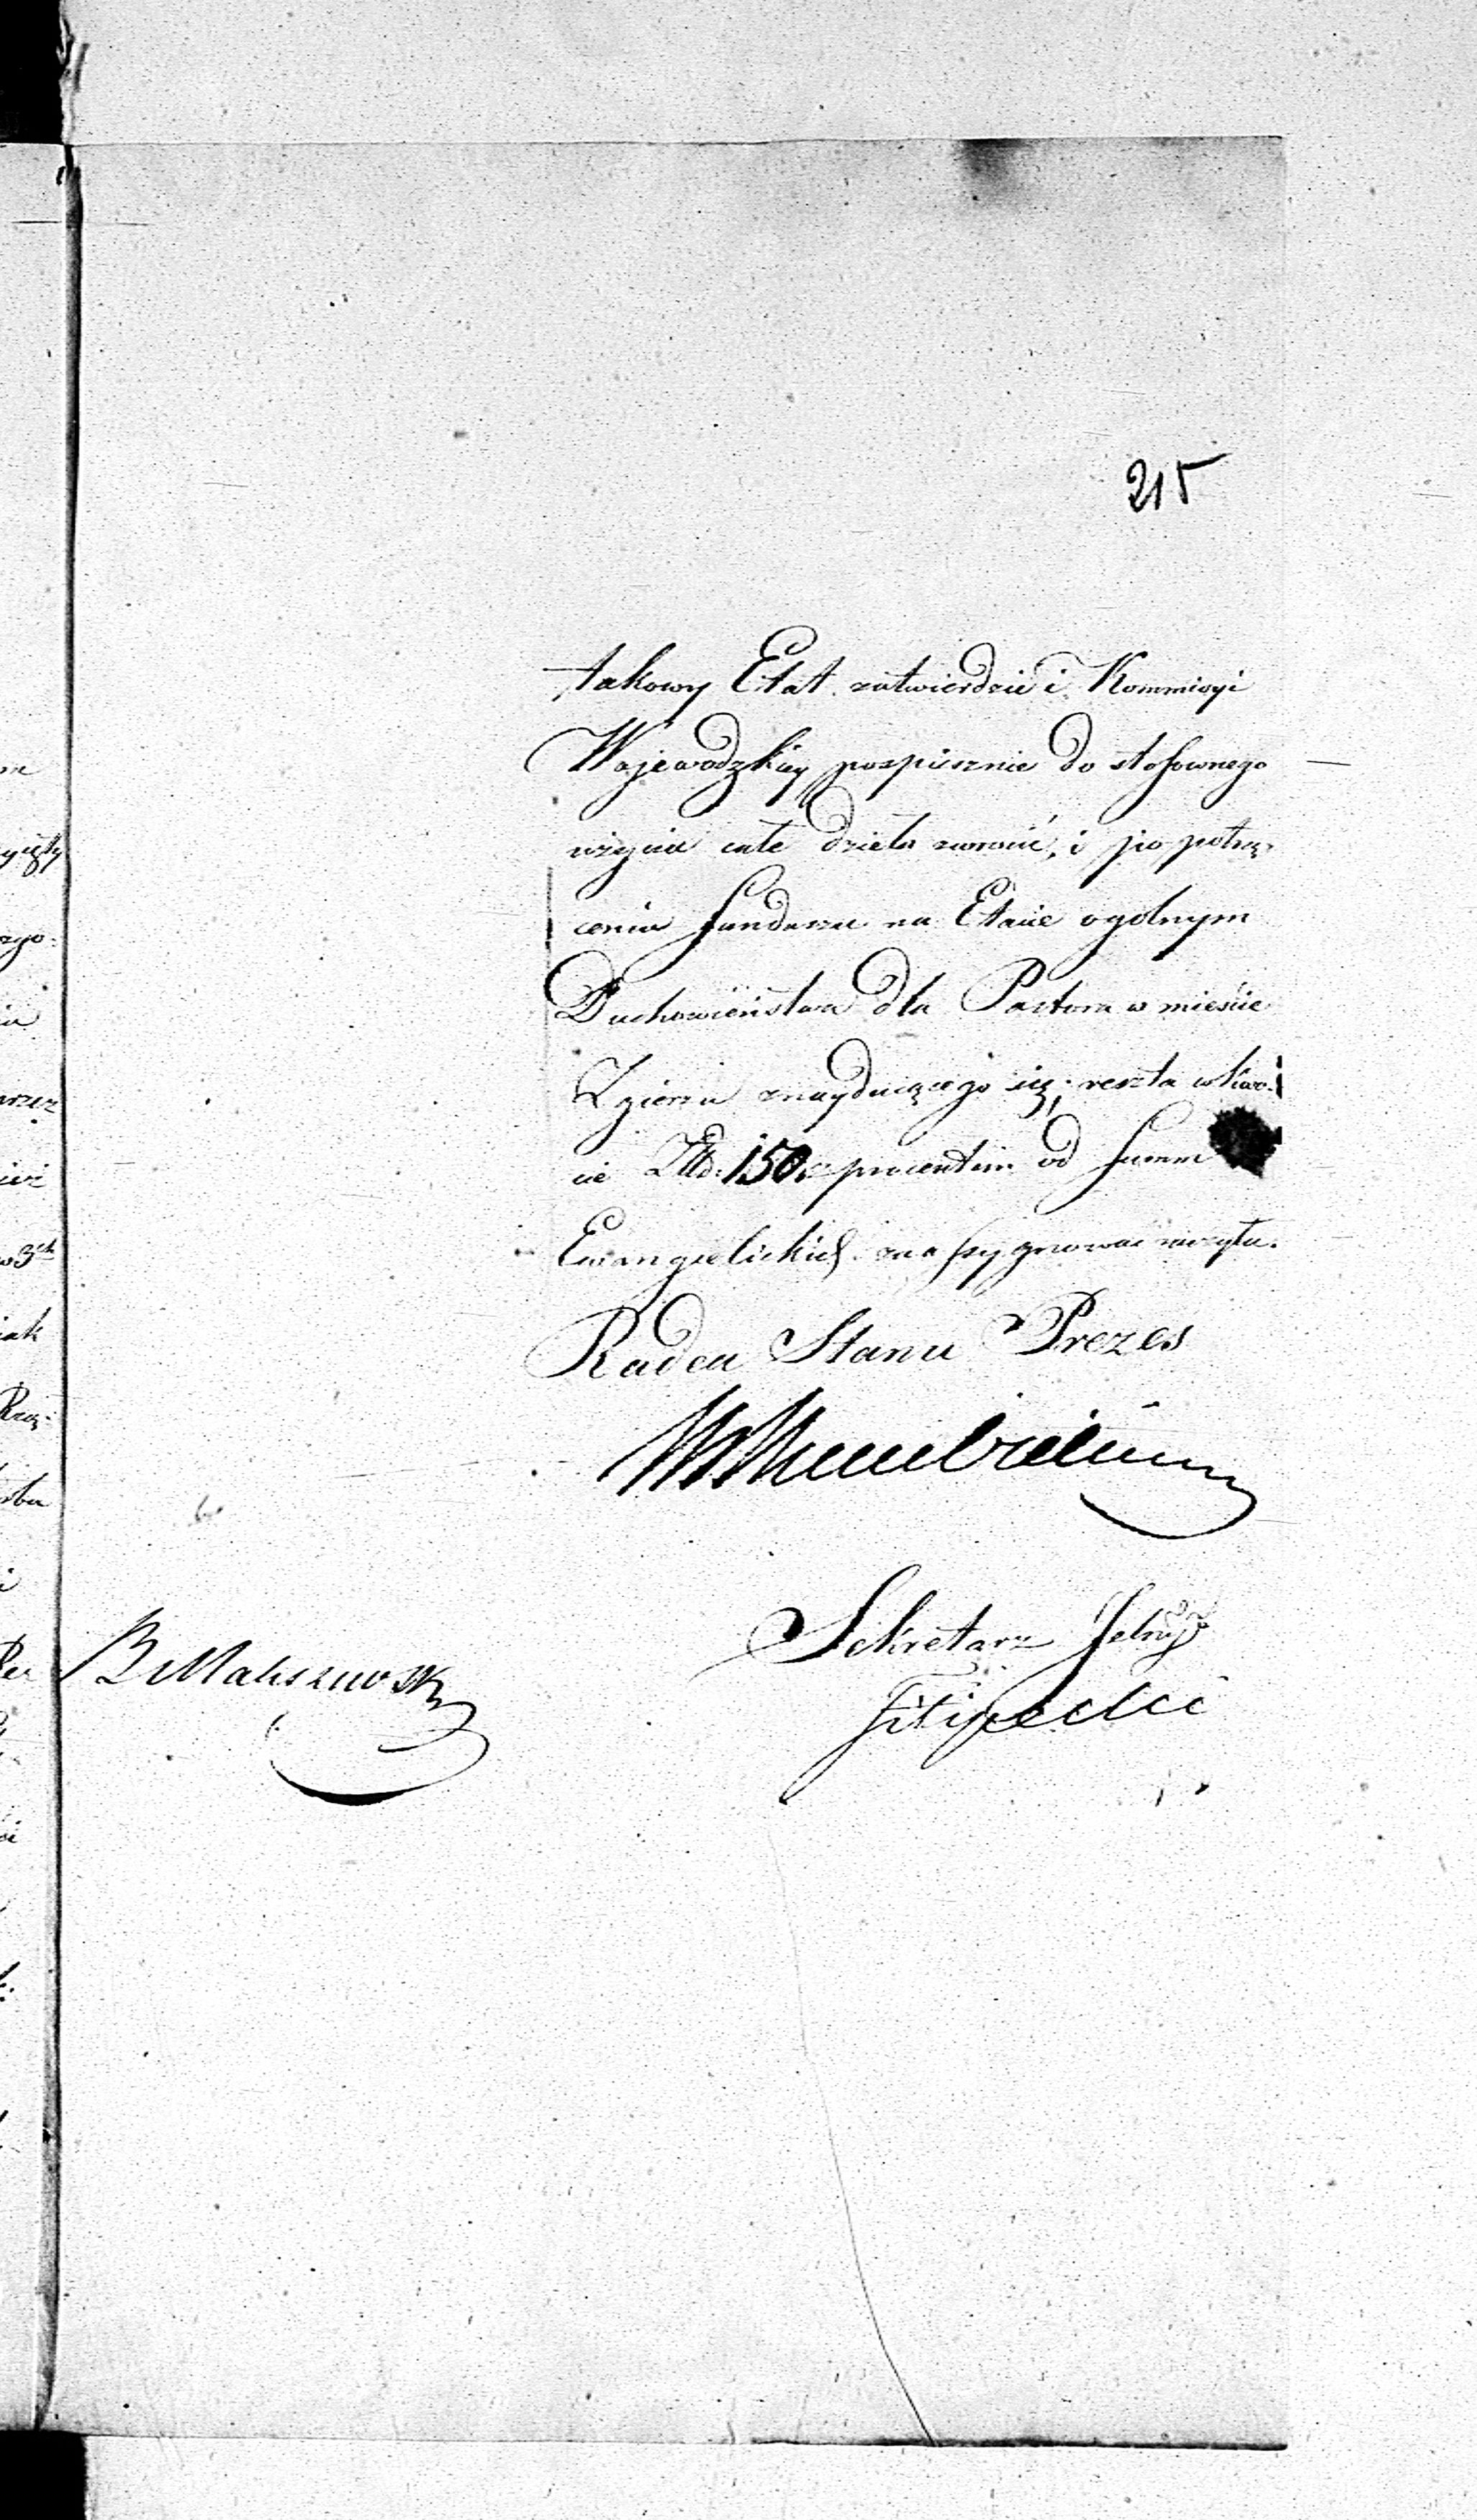 215
takowy Etat zatwierdzić i Kommissyi
Wojewodzkiey pospiesznie do stosownego
użycia całe dzieło zwrócić, i po potrą-
ceniu funduszu na Etacie ogolnym
Duchowieństwa dla Pastora w mieście
Zgierzu znayduiącego się, reszta w kwo-
cie Złł. 150. procentem od Summ
Ewangelickich zaassygnować raczyła.
Radca Stanu Prezes
Sekretarz Jelny
Filipecki
B Maliszewski